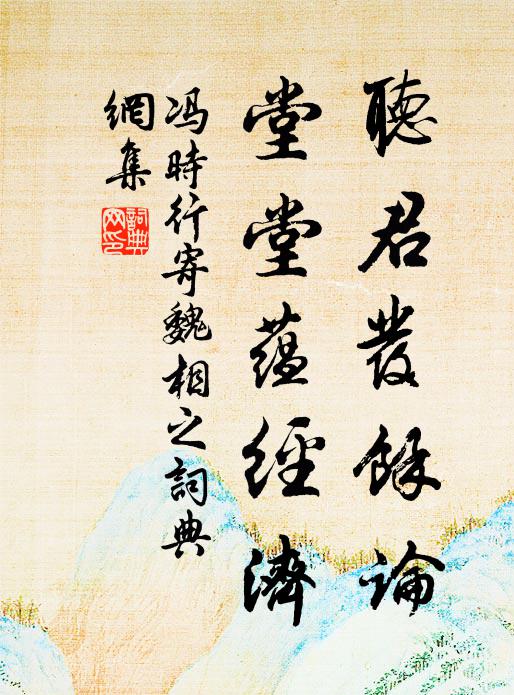 聽君發餘論
堂堂蘊經濟
冯時行寄魏相之詞典
網集
詞典網印